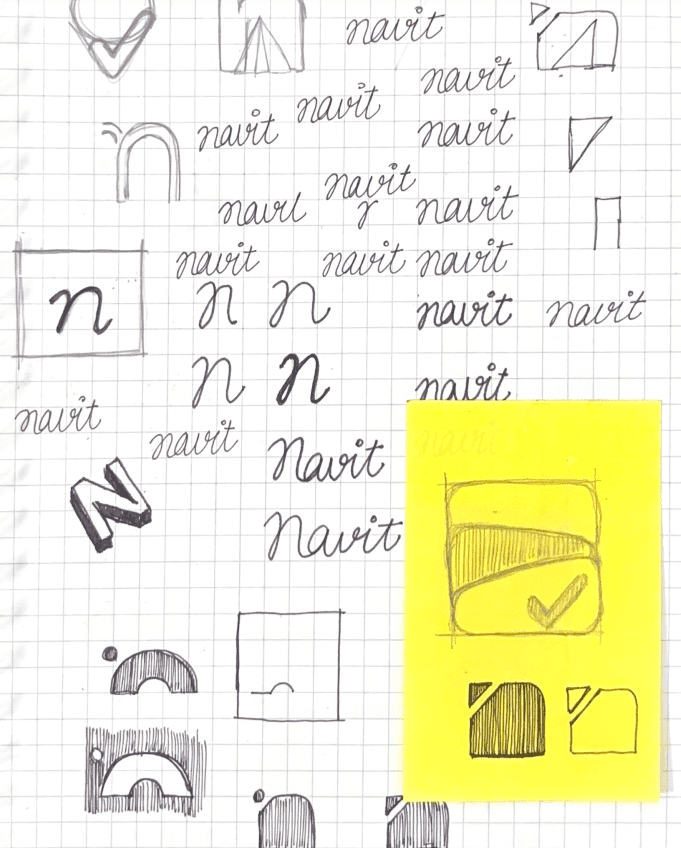 navit
navit
navit
navit
navit
navit
navit
navit
navit
navit
navit
n
n
n
navit
navit
n
n
navit
navit
navit
N
Navit
Navit